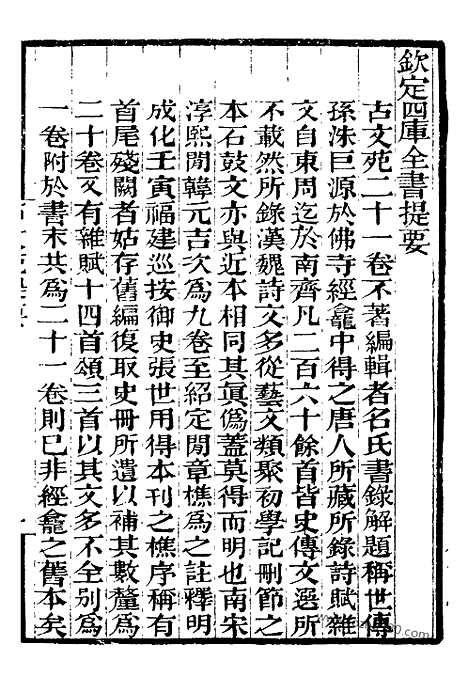 欽定四庫全書提要
古文苑二十一卷不著編輯者名氏書錄解題稱世傳
孫洙巨源於佛寺經龕中得之唐人所藏所錄詩賦雜
文自東周迄於南齊凡二百六十餘首皆史傳文選所
不載然所錄漢魏詩文多從藝文類聚初學記刪節之
本石鼓文亦與近本相同其眞僞蓋莫得而明也南宋
淳熙閒韓元吉次爲九卷至紹定閒章樵爲之註釋明
成化壬寅福建巡按御史張世用得本刊之樵序稱有
首尾殘闕者姑存舊編復取史冊所遺以補其數釐爲
二十卷又有雜賦十四首頌三首以其文多不全別爲
一卷附於書末共爲二十一卷則已非經龕之舊本矣